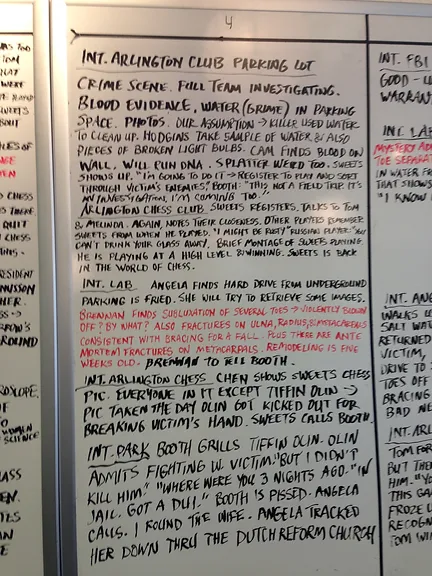 4
INT. ARLINGTON CLUB PARKING LOT
CRIME SCENE. FULL TEAM INVESTIGATING.
BLOOD EVIDENCE, WATER (GRIME) IN PARKING
SPACE. PHOTOS. OUR ASSUMPTION → KILLER USED WATER
TO CLEAN UP. HODGINS TAKE SAMPLE OF WATER & ALSO
PIECES OF BROKEN LIGHT BULBS. CAM FINDS BLOOD ON
WALL. WILL RUN DNA. SPLATTER WEIRD TOO. SWEETS
SHOWS UP. "I'M GOING TO DO IT → REGISTER TO PLAY AND SORT
THROUGH VICTIM'S ENEMIES." BOOTH: "THIS NOT A FIELD TRIP IT'S
AN INVESTIGATION, I'M COMING TOO."
ARLINGTON CHESS CLUB. SWEETS REGISTERS. TALKS TO TOM
& MELINDA. AGAIN, NOTES THEIR CLOSENESS. OTHER PLAYERS REMEMBER
SWEETS FROM WHEN HE PLAYED. "I MIGHT BE RUSTY" RUSSIAN PLAYER: "YOU
CAN'T DRINK YOUR GLASS AWAY. BRIEF MONTAGE OF SWEETS PLAYING.
HE IS PLAYING AT A HIGH LEVEL & WINNING. SWEETS IS BACK
IN THE WORLD OF CHESS.
INT. LAB. ANGELA FINDS HARD DRIVE FROM UNDERGROUND
PARKING IS FRIED. SHE WILL TRY TO RETRIEVE SOME IMAGES.
BRENNAN FINDS SUBLUXATION OF SEVERAL TOES → VIOLENTLY BLOWN
OFF? BY WHAT? ALSO FRACTURES ON ULNA, RADIUS, & METACARPALS
CONSISTENT WITH BRACING FOR A FALL. PLUS THERE ARE ANTE
MORTEM FRACTURES ON METACARPALS. REMODELING IS FIVE
WEEKS OLD. BRENNAN TO TELL BOOTH.
INT. ARLINGTON CHESS. CHEN SHOWS SWEETS CHESS
PIC. EVERYONE IN IT EXCEPT TIFFIN OLIN →
PIC TAKEN THE DAY OLIN GOT KICKED OUT FOR
BREAKING VICTIM'S HAND. SWEETS CALLS BOOTH.
INT. PARK BOOTH GRILLS TIFFIN OLIN. OLIN
ADMITS FIGHTING W. VICTIM. "BUT I DIDN'T
KILL HIM." "WHERE WERE YOU 3 NIGHTS AGO." "IN
JAIL. GOT A DUI." BOOTH IS PISSED. ANGELA
CALLS. I FOUND THE WIFE. ANGELA TRACKED
HER DOWN THRU THE DUTCH REFORM CHURCH
INT. FBI
GOOD - U
WARRANT
INT. LAB
MYSTERY AD
TOE SEPARAT
IN WATER FR
THAT SHOWS
"I KNOW
INT. AN
WALKS U
SALT WAT
RETURNED
VICTIM,
DRIVE TO
TOES OFF
BRACING
BAD NE
INT. ARL
TOM FOR
BUT THE
HIM. "YO
THIS GA
FROZE U
RECOGN
TOM WI